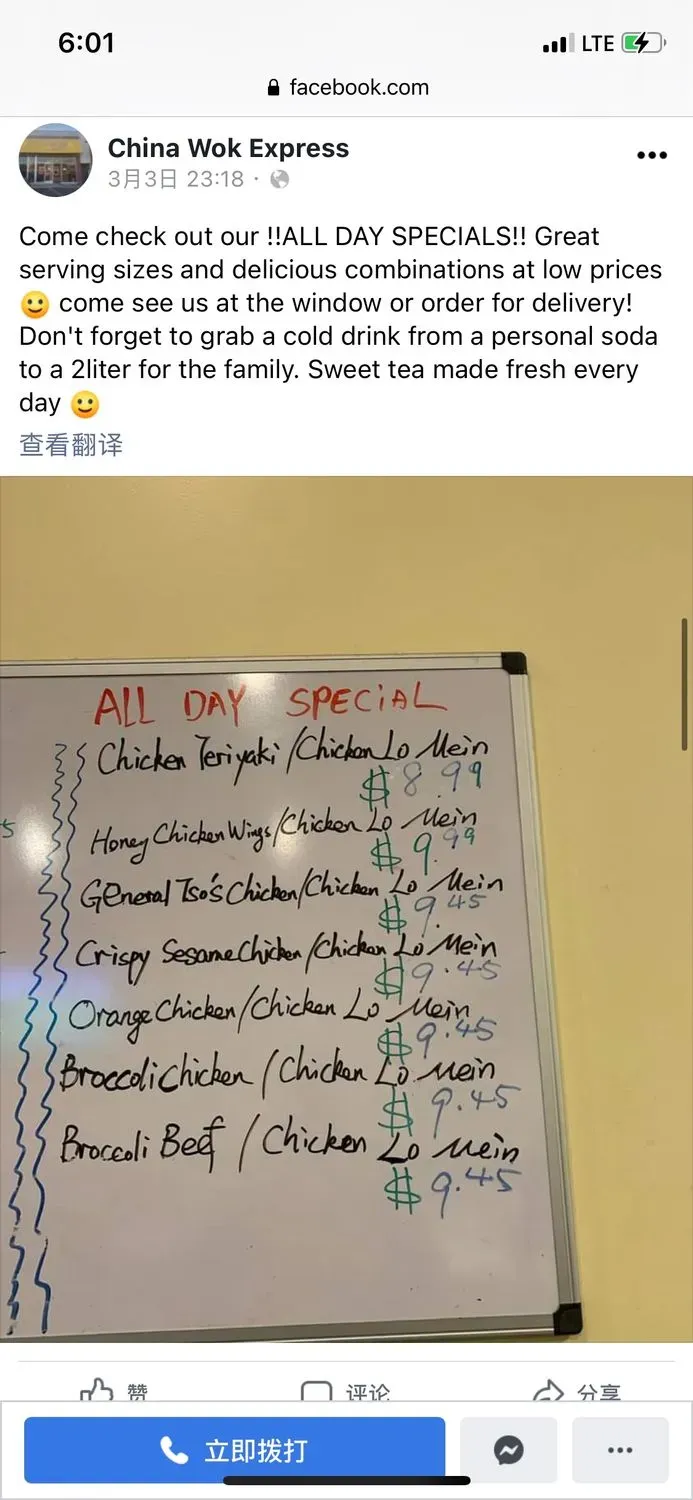 6:01
LTE
facebook.com
China Wok Express
3月3日 23:18 ·
Come check out our !!ALL DAY SPECIALS!! Great
serving sizes and delicious combinations at low prices
🙂 come see us at the window or order for delivery!
Don't forget to grab a cold drink from a personal soda
to a 2liter for the family. Sweet tea made fresh every
day 🙂
查看翻译
ALL DAY SPECIAL
Chicken Teriyaki/Chicken Lo Mein
$8.99
Honey Chicken Wings/Chicken Lo Mein
$9.99
5
General Tso's Chicken/Chicken Lo Mein
$9.45
Crispy Sesame Chicken/Chicken Lo Mein
$9.45
Orange Chicken/Chicken Lo Mein
$9.45
Broccoli Chicken/Chicken Lo Mein
$9.45
Broccoli Beef/Chicken Lo Mein
$9.45
赞 评论 分享
立即拨打